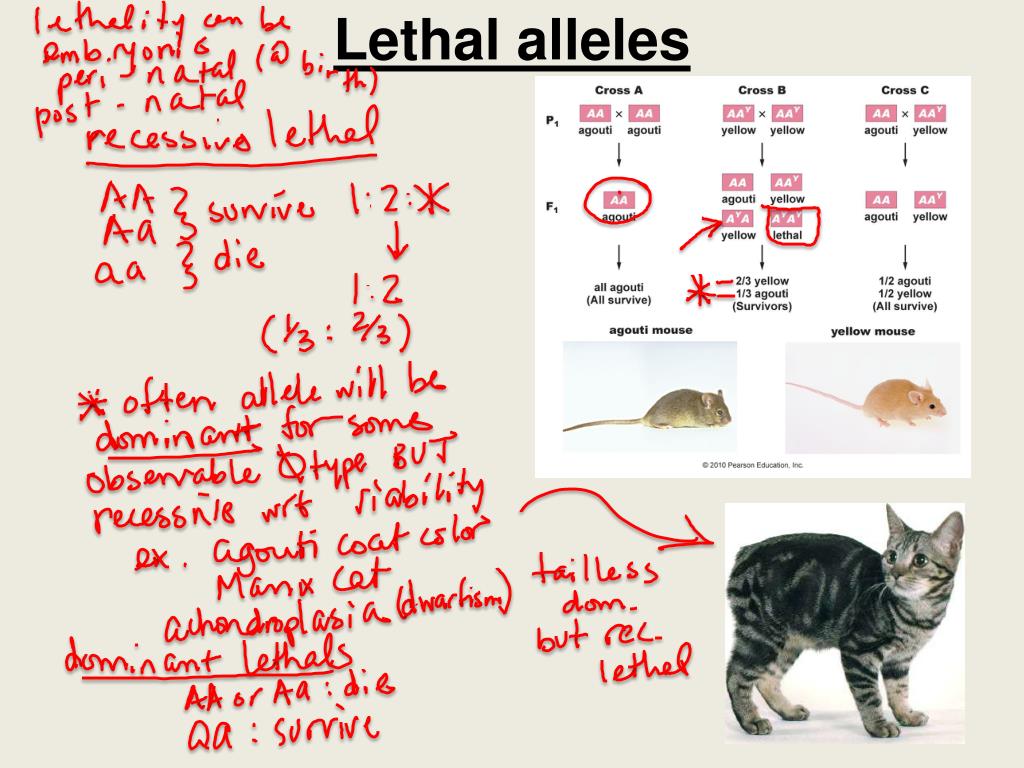 Lethal alleles
lethality can be
embryonic
peri-natal (@ birth)
post-natal
recessive lethal
AA } survive 1:2:*
Aa
aa } die
1:2
(1/3 : 2/3)
* often allele will be
dominant for some
observable Φtype BUT
recessive wrt viability
ex. agouti coat color
Manx cat
achondroplasia (dwarfism)
dominant lethals
AA or Aa : die
aa : survive
Cross A Cross B Cross C
P1 AA × AA AAY × AAY AA × AAY
agouti agouti yellow yellow agouti yellow
AA AAY
agouti yellow
F1 AA AA AAY
agouti agouti yellow
AYA AYAY
yellow lethal
* 2/3 yellow
1/3 agouti
(Survivors)
all agouti
(All survive)
1/2 agouti
1/2 yellow
(All survive)
agouti mouse yellow mouse
© 2010 Pearson Education, Inc.
tailless
dom.
but rec.
lethal